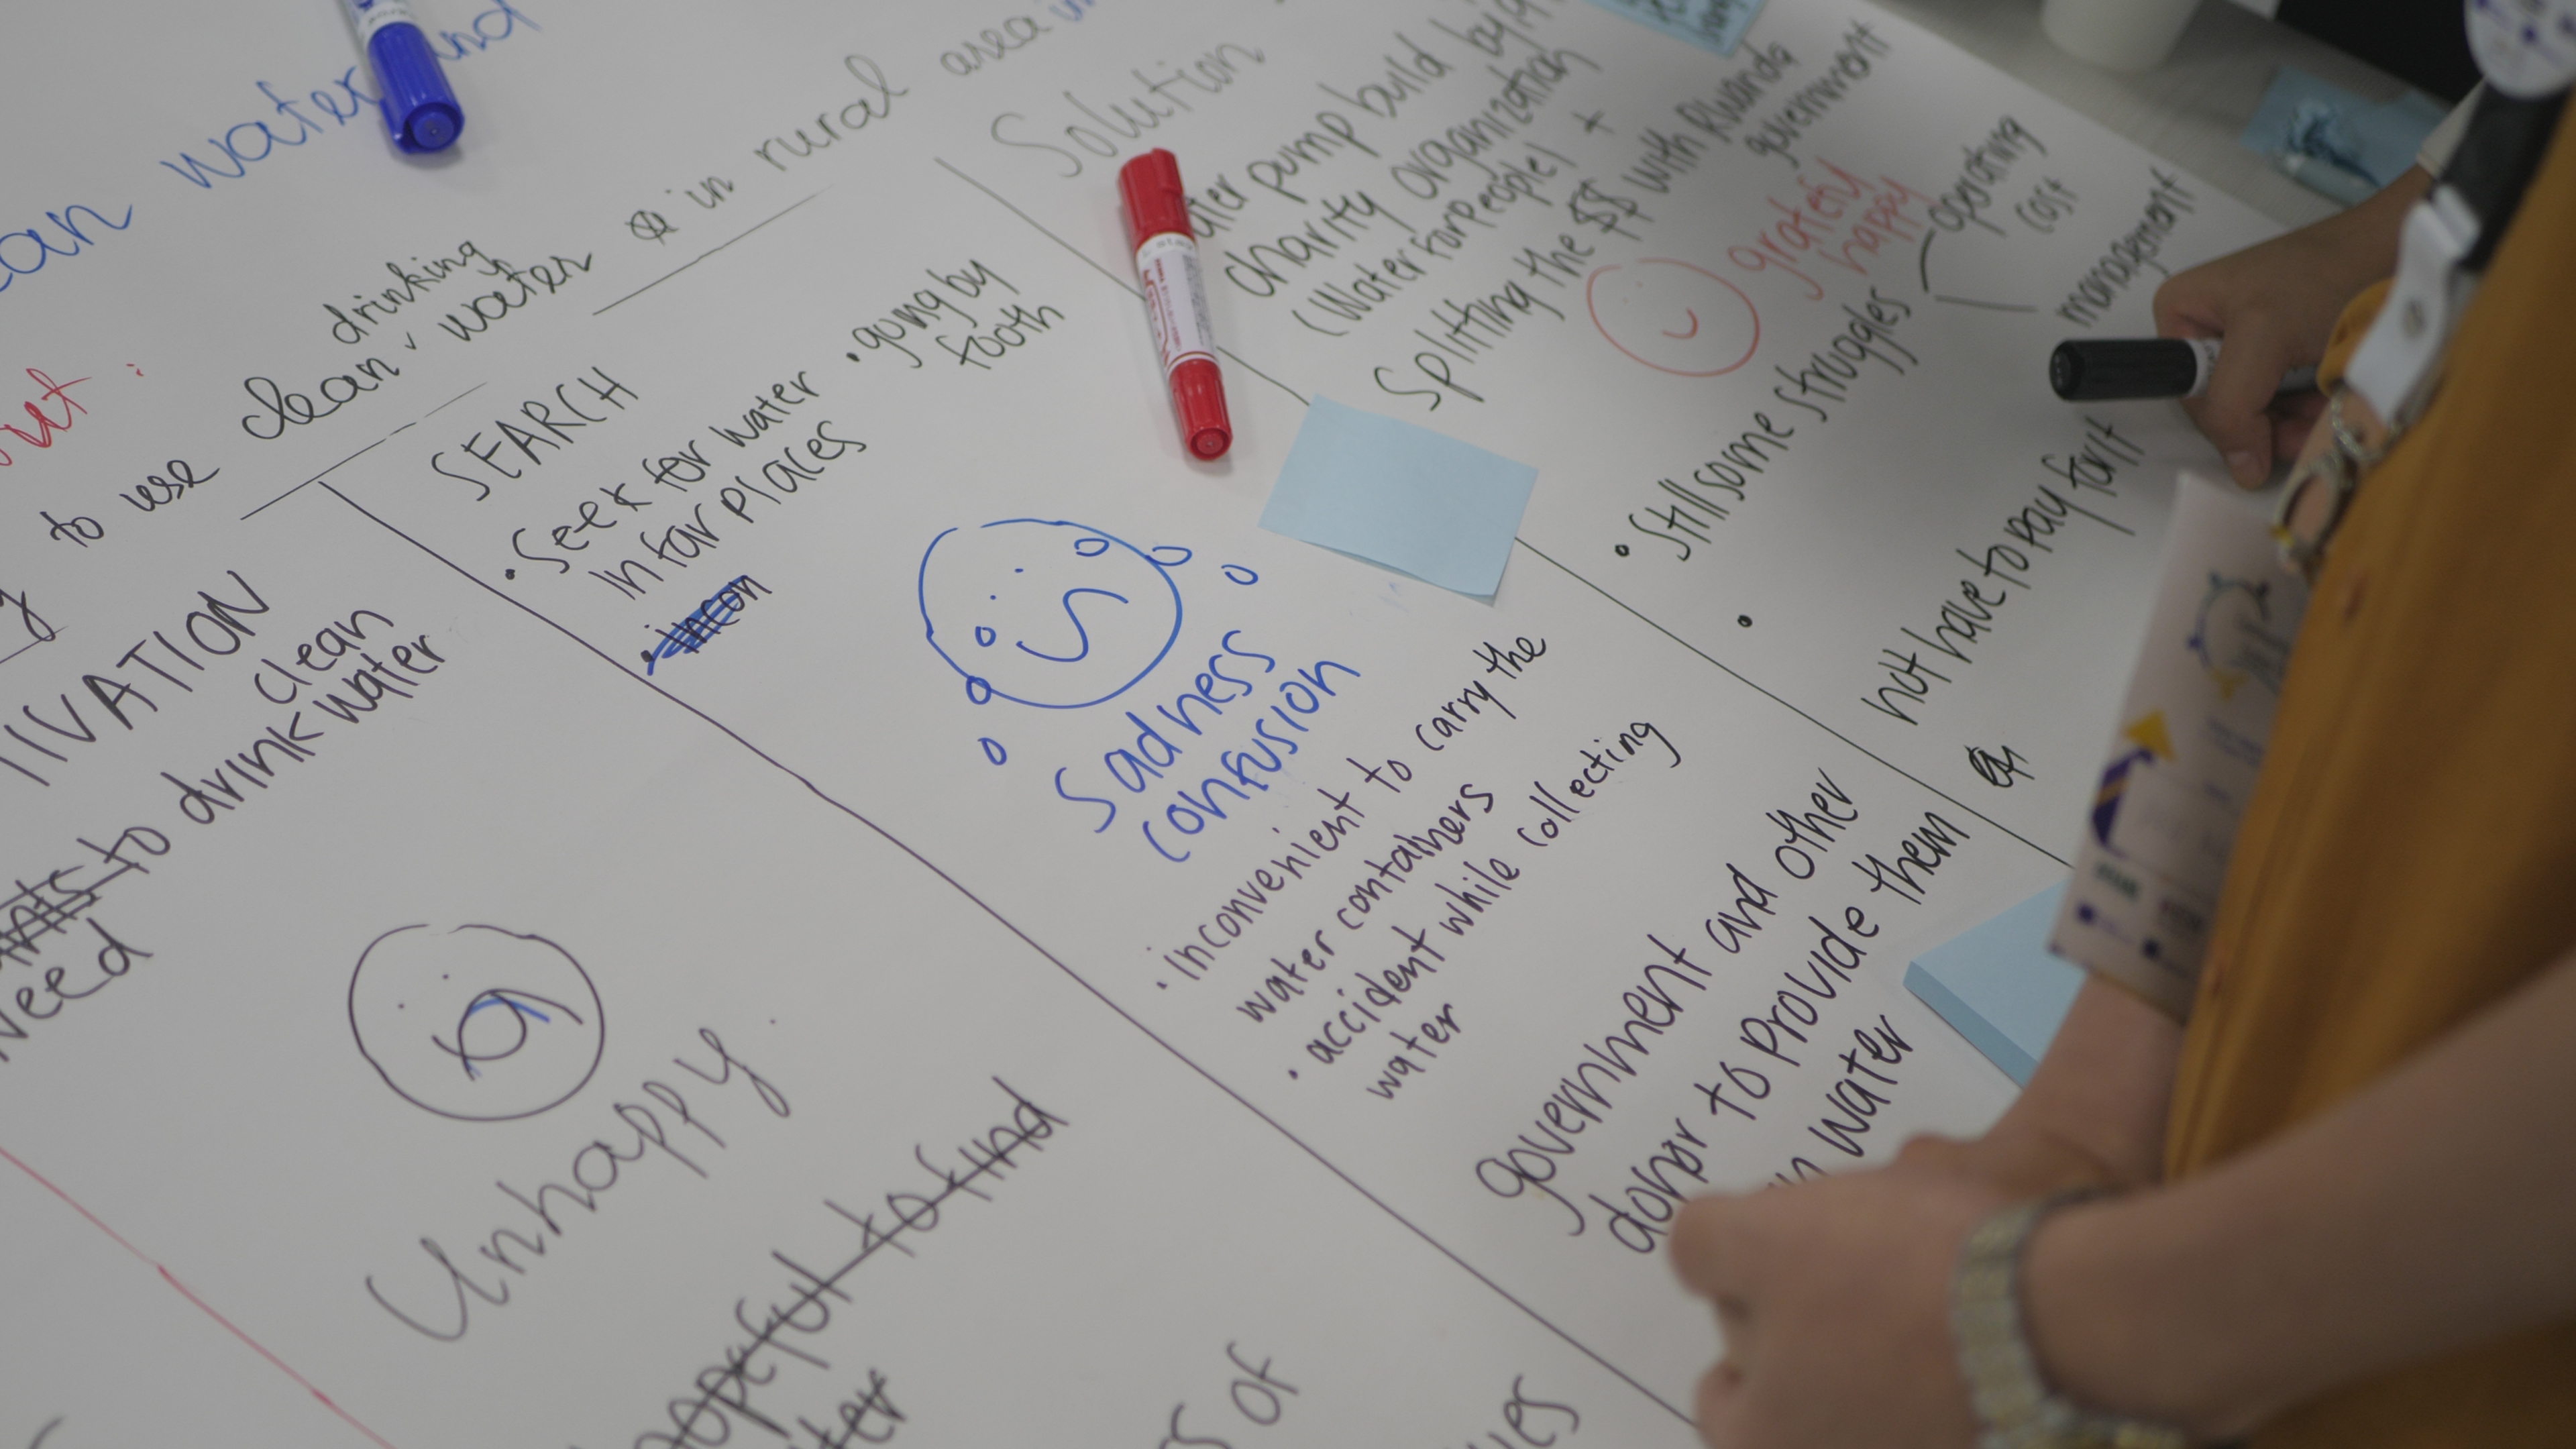 water and
drinking
to use clean water in rural area in
SEARCH
• Seek for water
in far places
• incon
• gung by
footh
Solution
pump build by
charity organization
(Water For People) +
Splitting the $$ with Rwanda
government
happy
• Still some struggles
operating
cost
management
•
nott have to pay fort
clean
to drink water
Need
Unhappy.
hopeful to find
Sadness
confusion
• inconvenient to carry the
water containers
• accident while collecting
water
government and other
donor to provide them
water
of